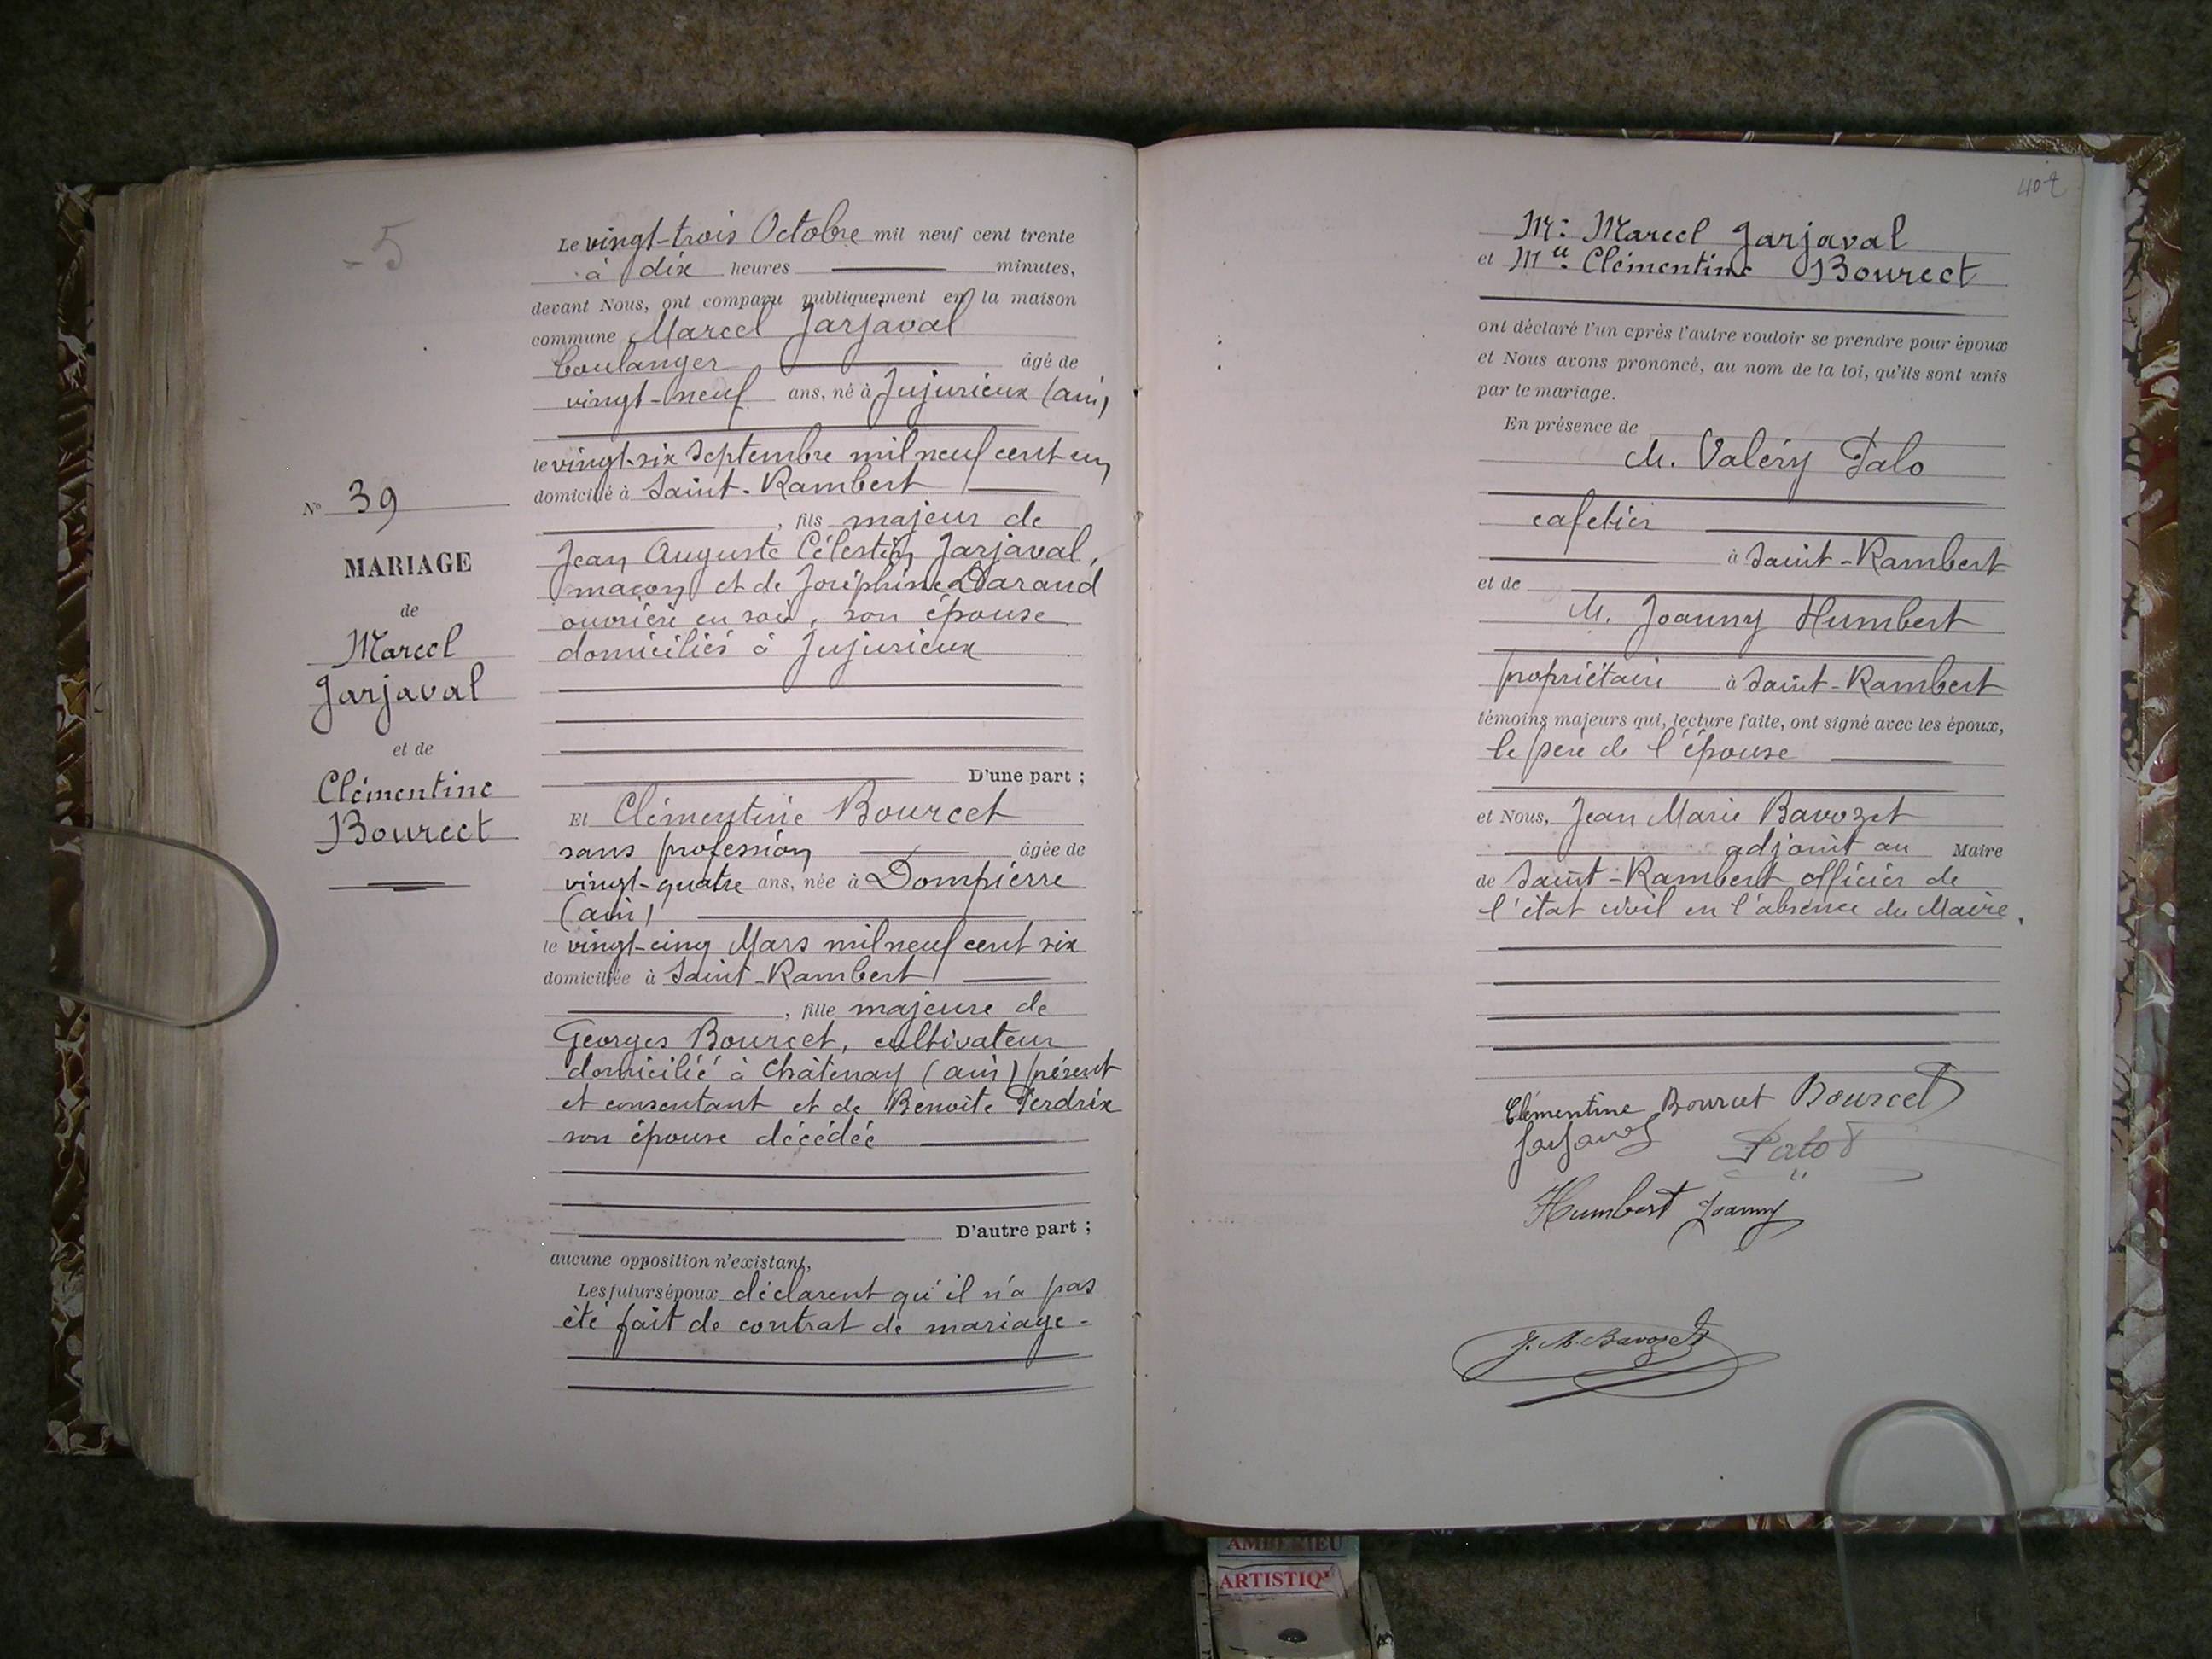 - 5
Le vingt-trois Octobre mil neuf cent trente
à dix heures minutes,
devant Nous, ont comparu publiquement en la maison
commune Marcel Jarjaval
boulanger âgé de
vingt-neuf ans, né à Jujurieux (ain)
le vingt-six Septembre mil neuf cent un
domicilié à Saint-Rambert
, fils majeur de
Jean Auguste Célestin Jarjaval,
maçon et de Joséphine Darand
ouvrière en soie, son épouse
domiciliés à Jujurieux
D'une part ;
N° 39
MARIAGE
de
Marcel
Jarjaval
et de
Clémentine
Bourcet
Et Clémentine Bourcet
sans profession âgée de
vingt-quatre ans, née à Dompierre
(ain)
le vingt-cinq Mars mil neuf cent six
domiciliée à Saint-Rambert
, fille majeure de
Georges Bourcet, cultivateur
domicilié à Châtenay (ain) présent
et consentant et de Benoite Perdrix
son épouse décédée
D'autre part ;
aucune opposition n'existant,
Les futurs époux déclarent qu'il n'a pas
été fait de contrat de mariage -
402
Mr: Marcel Jarjaval
et Mlle. Clémentine Bourcet
ont déclaré l'un après l'autre vouloir se prendre pour époux
et Nous avons prononcé, au nom de la loi, qu'ils sont unis
par le mariage.
En présence de
M. Valéry Palo
cafetier
à Saint-Rambert
et de
M. Joanny Humbert
propriétaire à Saint-Rambert
témoins majeurs qui, lecture faite, ont signé avec les époux,
le père de l'épouse
et Nous, Jean Marie Bavozet
adjoint au Maire
de Saint-Rambert officier de
l'état civil en l'absence du Maire.
Clémentine Bourcet Bourcet
Jarjaval Palo
Humbert Joanny
J. M. Bavozet
AMBERIEU
ARTISTIQ